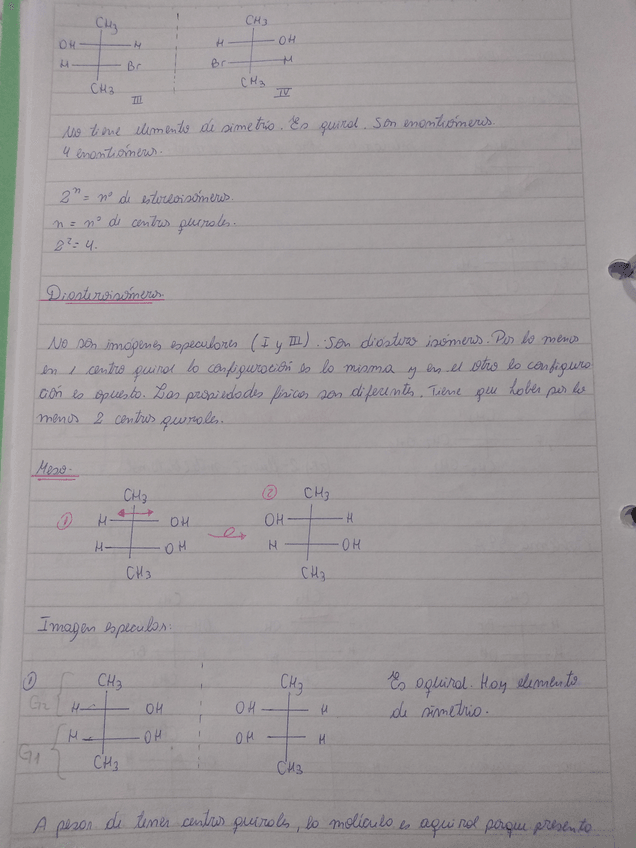 CH3 CH3
OH H H OH
H Br Br H
CH3 CH3
III IV
No tiene elemento de simetría. Es quiral. Son enantiómeros.
4 enantiómeros.
2ⁿ = nº de estereoisómeros.
n = nº de centros quirales.
2² = 4.
Diasteroisómeros
No son imágenes especulares (I y III). Son diastero isómeros. Por lo menos
en 1 centro quiral la configuración es la misma y en el otro la configura
ción es opuesta. Las propiedades físicas son diferentes. Tiene que haber por lo
menos 2 centros quirales.
Meso.
CH3 ② CH3
① H OH OH H
H OH H OH
CH3 CH3
Imagen especular:
① CH3 CH3 Es aquiral. Hay elemento
G2 H OH OH H de simetría.
G1 H OH OH H
CH3 CH3
A pesar de tener centros quirales, la molécula es aquiral porque presenta